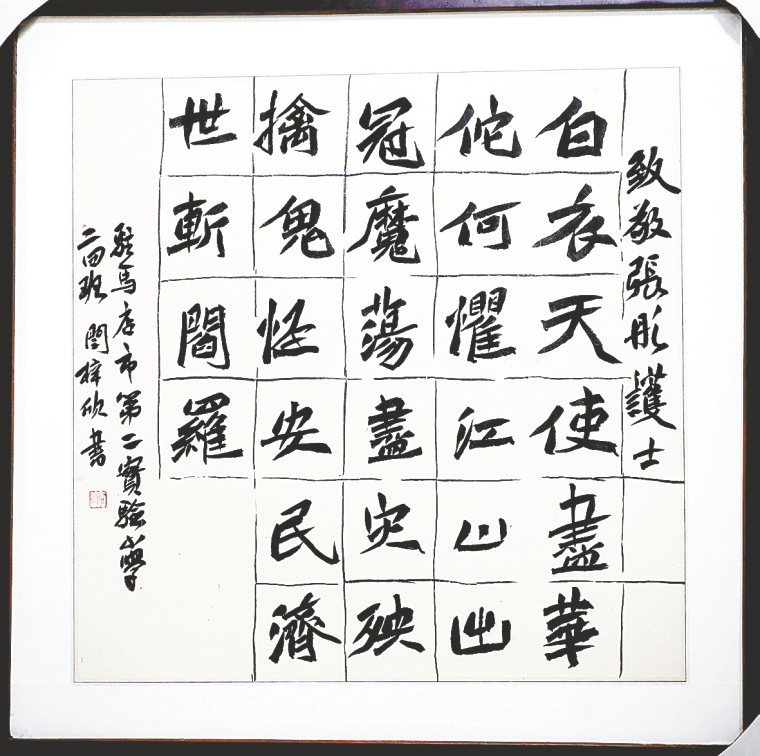 致敬張彤護士
白衣天使盡華
佗何懼江山出
冠魔蕩盡灾殃
擒鬼怪安民濟
世斬閻羅
駐馬店市第二實驗小學
二四班 閆梓欣書